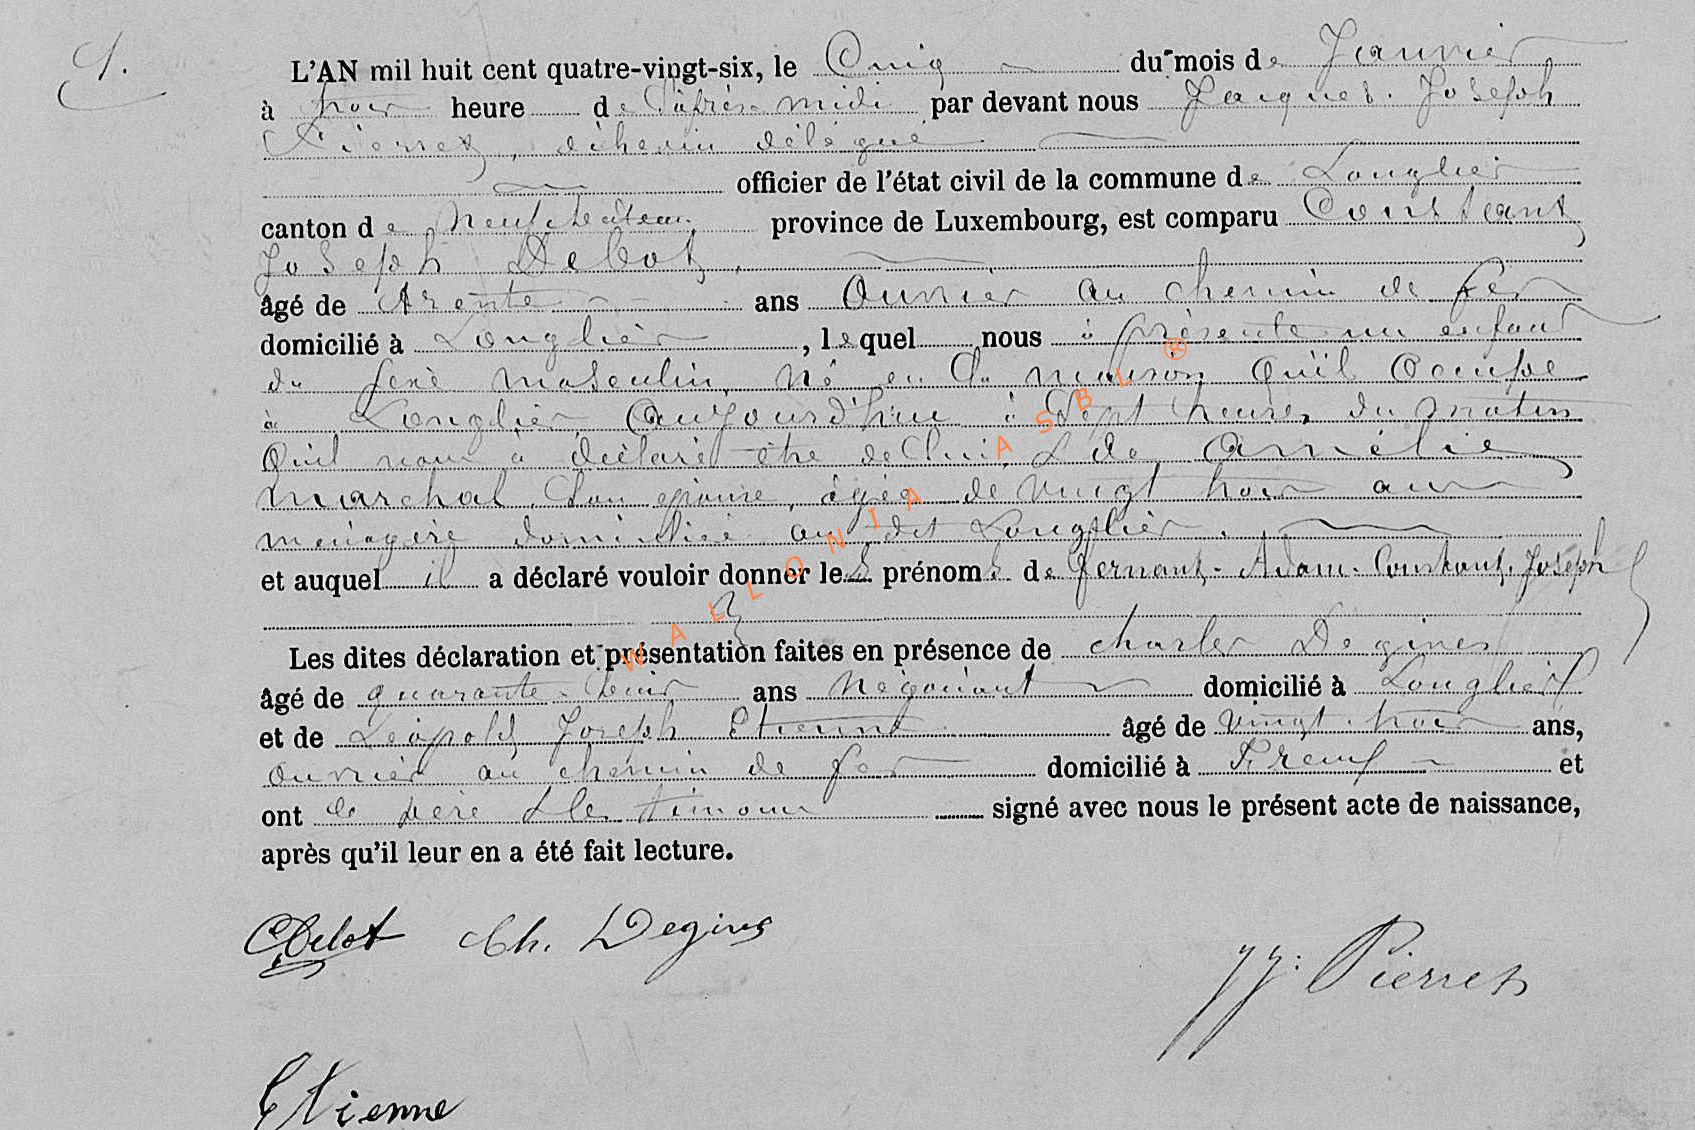 1.
L'AN mil huit cent quatre-vingt-six, le Cinq du mois de Janvier
à trois heure de l'après midi par devant nous Jacques Joseph
Pierret, échevin délégué
officier de l'état civil de la commune de Longlier
canton de Neufchâteau province de Luxembourg, est comparu Constant
Joseph Delot,
âgé de trente ans Ouvrier au chemin de fer
domicilié à Longlier, lequel nous à présenté un enfant
du sexe masculin, né en la maison qu'il occupe
à Longlier, aujourd'hui à sept heures du matin
qu'il nous a déclaré être de lui & de Amélie
Marchal, son épouse, âgée de vingt trois ans
ménagère domiciliée au dit Longlier.
et auquel il a déclaré vouloir donner les prénoms de Fernant-Adam-Constant-Joseph
Les dites déclaration et présentation faites en présence de Charles Degives
âgé de quarante-deux ans Négociant domicilié à Longlier
et de Léopold Joseph Etienne âgé de vingt-trois ans,
ouvrier au chemin de fer domicilié à et
ont le père & les témoins signé avec nous le présent acte de naissance,
après qu'il leur en a été fait lecture.
CDelot Ch. Degives
JJ: Pierret
Etienne
WALLONIA ASBL ®